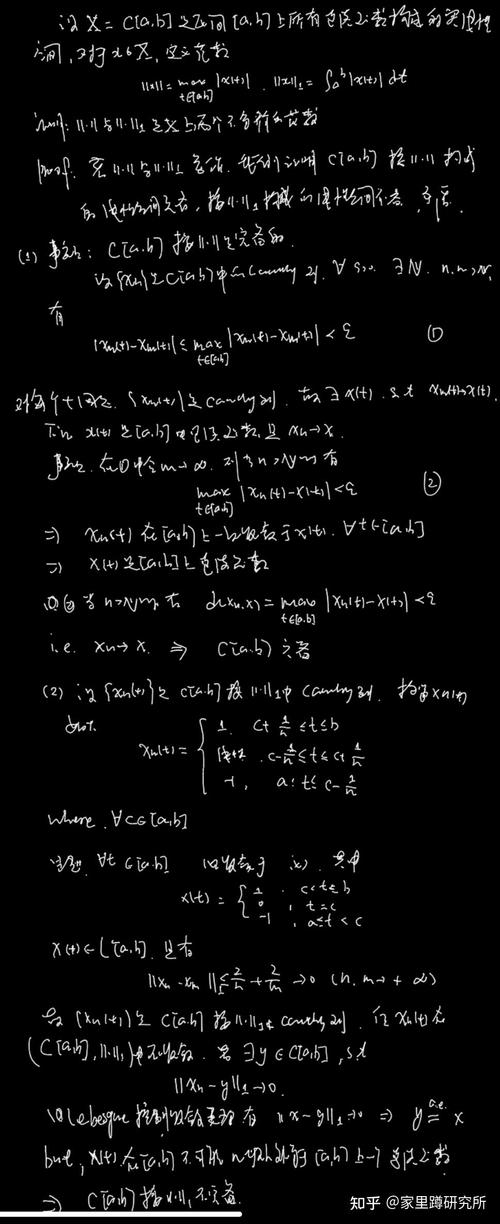 设 X = C[a,b] 是区间 [a,b] 上所有连续函数构成的实线性
空间, 对于 x∈X, 定义范数
||x|| = max_{t∈[a,b]} |x(t)| , ||x||₁ = ∫ₐᵇ |x(t)| dt
||·|| 与 ||·||₁ 是 X 上两个不等价的范数
proof: 若 ||·|| 与 ||·||₁ 等价, 我们证明 C[a,b] 按 ||·|| 构成
的线性空间完备, 按 ||·||₁ 构成的线性空间不完备, 矛盾.
(1) 事实上: C[a,b] 按 ||·|| 是完备的.
设 {xn} 是 C[a,b] 中的 Cauchy 列, ∀ ε>0, ∃ N, n,m>N,
有
|xn(t)-xm(t)| ≤ max_{t∈[a,b]} |xn(t)-xm(t)| < ε ①
对每个 t 固定, {xn(t)} 是 Cauchy 列, 故 ∃ x(t), s.t xn(t)→x(t).
下证 x(t) 是 [a,b] 上连续函数, 且 xn→x.
事实上, 在①中令 m→∞, 则当 n>N 时有
max_{t∈[a,b]} |xn(t)-x(t)| < ε ②
⇒ xn(t) 在 [a,b] 上一致收敛于 x(t), ∀t∈[a,b]
⇒ x(t) 是 [a,b] 上连续函数
当 n>N 时有 d(xn,x) = max_{t∈[a,b]} |xn(t)-x(t)| < ε
i.e. xn→x. ⇒ C[a,b] 完备
(2) 设 {xn(t)} 是 C[a,b] 按 ||·||₁ 中 Cauchy 列,
xn(t) = { 1, c+1/n ≤ t ≤ b
线性, c-1/n ≤ t ≤ c+1/n
-1, a ≤ t ≤ c-1/n
where, ∀c∈[a,b]
∀t∈[a,b] 收敛于 x(t), 其中
x(t) = { 1, c<t≤b
0, t=c
-1, a≤t<c
x(t)∈L[a,b], 且有
||xn-xm||₁ ≤ 2/n + 2/m → 0 (n,m→+∞)
故 {xn(t)} 是 C[a,b] 按 ||·||₁ 的 Cauchy 列, 但 xn(t) 在
(C[a,b], ||·||₁) 中不收敛. 若 ∃ y∈C[a,b], s.t
||xn-y||₁→0.
由 Lebesgue 控制收敛定理有 ||x-y||₁→0 ⇒ y =^{a.e.} x
but, x(t) 在 [a,b] 不可能 [a,b] 上一个连续函数
⇒ C[a,b] 按 ||·||₁ 不完备.
知乎 @家里蹲研究所